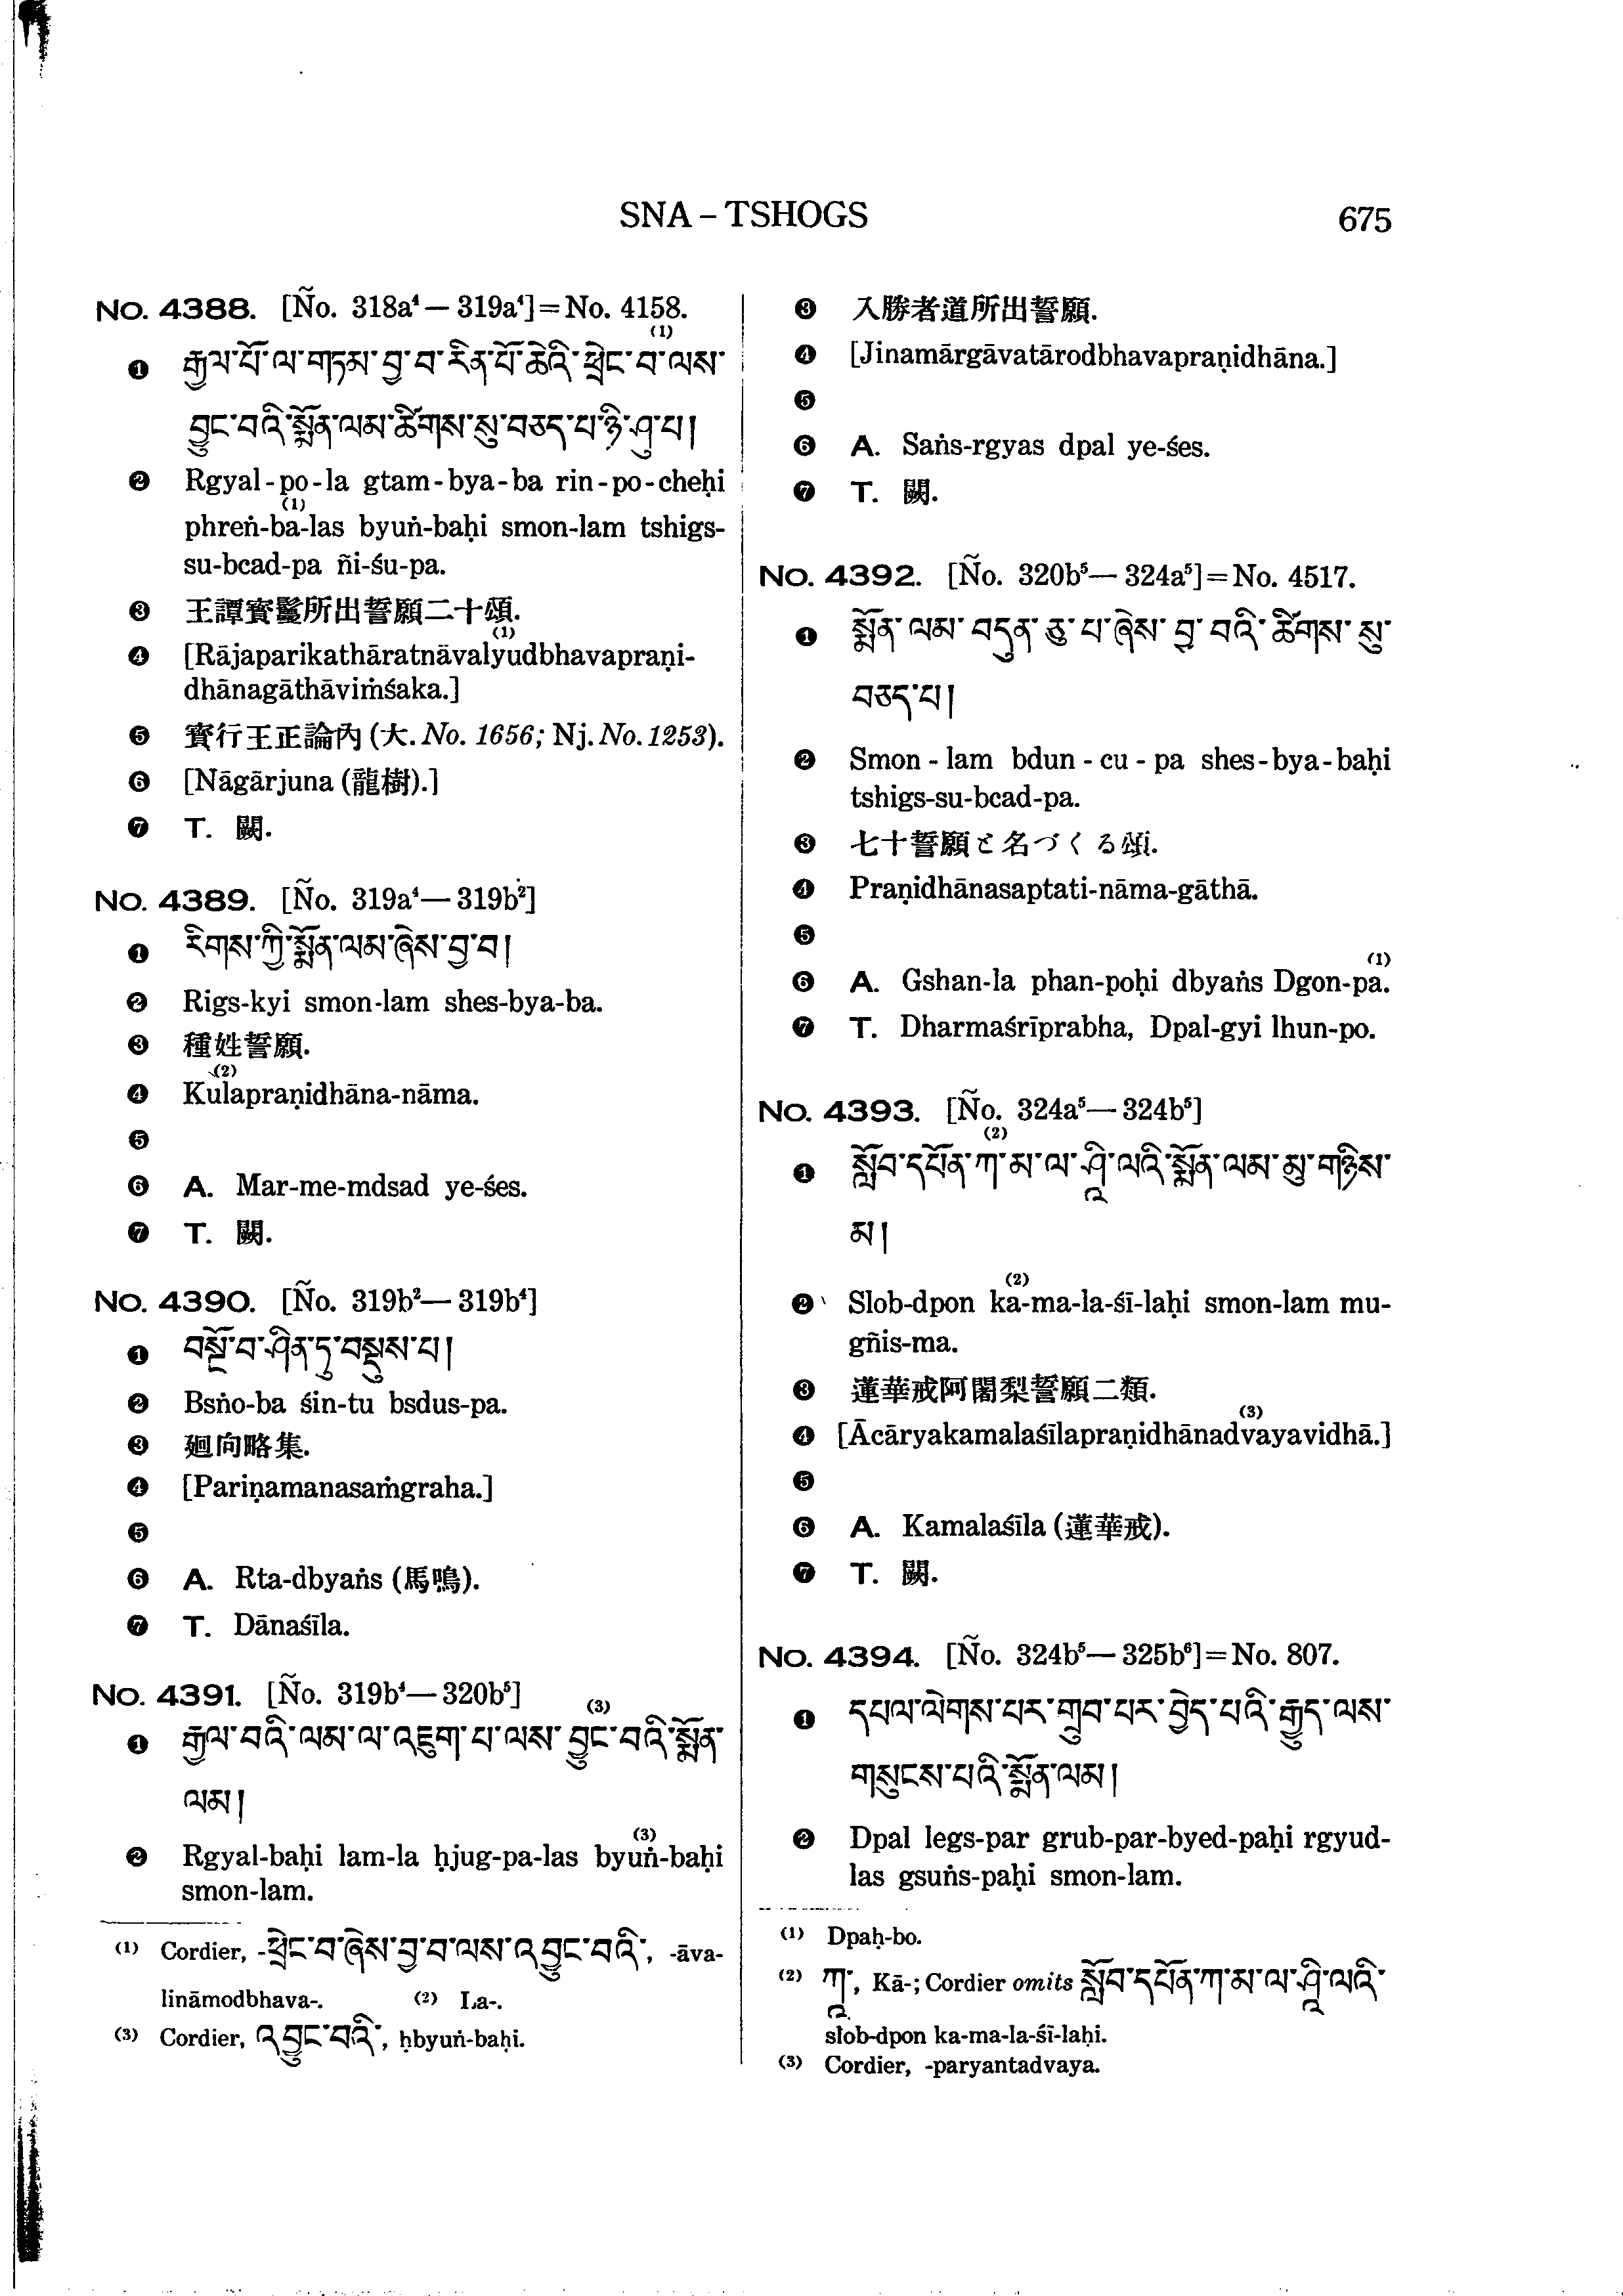 SNA – TSHOGS
675
No. 4388. [Ño. 318a⁴ — 319a⁴] = No. 4158.
(1)
❶ རྒྱལ་པོ་ལ་གཏམ་བྱ་བ་རིན་པོ་ཆེའི་ཕྲེང་བ་ལས་
བྱུང་བའི་སྨོན་ལམ་ཚིགས་སུ་བཅད་པ་ཉི་ཤུ་པ།
❷ Rgyal-po-la gtam-bya-ba rin-po-cheḥi
(1)
phreṅ-ba-las byuṅ-baḥi smon-lam tshigs-
su-bcad-pa ñi-śu-pa.
❸ 王譚寳鬘所出誓願二十頌.
(1)
❹ [Rājaparikathāratnāvalyudbhavapraṇi-
dhānagāthāviṁśaka.]
❺ 寳行王正論內 (大. No. 1656; Nj. No. 1253).
❻ [Nāgārjuna (龍樹).]
❼ T. 闕.
No. 4389. [Ño. 319a⁴ — 319b²]
❶ རིགས་ཀྱི་སྨོན་ལམ་ཞེས་བྱ་བ།
❷ Rigs-kyi smon-lam shes-bya-ba.
❸ 種姓誓願.
(2)
❹ Kulapraṇidhāna-nāma.
❺
❻ A. Mar-me-mdsad ye-śes.
❼ T. 闕.
No. 4390. [Ño. 319b² — 319b⁴]
❶ བསྔོ་བ་ཤིན་ཏུ་བསྡུས་པ།
❷ Bsṅo-ba śin-tu bsdus-pa.
❸ 廻向略集.
❹ [Pariṇamanasaṁgraha.]
❺
❻ A. Rta-dbyaṅs (馬鳴).
❼ T. Dānaśīla.
No. 4391. [Ño. 319b⁴ — 320b⁵]
(3)
❶ རྒྱལ་བའི་ལམ་ལ་འཇུག་པ་ལས་བྱུང་བའི་སྨོན་
ལམ།
(3)
❷ Rgyal-baḥi lam-la ḥjug-pa-las byuṅ-baḥi
smon-lam.
(1) Cordier, -ཕྲེང་བ་ཞེས་བྱ་བ་ལས་འབྱུང་བའི་, -āva-
lināmodbhava-. (2) La-.
(3) Cordier, འབྱུང་བའི་, ḥbyuṅ-baḥi.
❸ 入勝者道所出誓願.
❹ [Jinamārgāvatārodbhavapraṇidhāna.]
❺
❻ A. Saṅs-rgyas dpal ye-śes.
❼ T. 闕.
No. 4392. [Ño. 320b⁵ — 324a⁵] = No. 4517.
❶ སྨོན་ལམ་བདུན་ཅུ་པ་ཞེས་བྱ་བའི་ཚིགས་སུ་
བཅད་པ།
❷ Smon-lam bdun-cu-pa shes-bya-baḥi
tshigs-su-bcad-pa.
❸ 七十誓願と名づくる頌.
❹ Praṇidhānasaptati-nāma-gāthā.
❺
(1)
❻ A. Gshan-la phan-poḥi dbyaṅs Dgon-pa.
❼ T. Dharmaśrīprabha, Dpal-gyi lhun-po.
No. 4393. [Ño. 324a⁵ — 324b⁵]
(2)
❶ སློབ་དཔོན་ཀ་མ་ལ་ཤཱི་ལའི་སྨོན་ལམ་མུ་གཉིས་
མ།
(2)
❷ Slob-dpon ka-ma-la-śī-laḥi smon-lam mu-
gñis-ma.
❸ 蓮華戒阿闍梨誓願二類.
(3)
❹ [Ācāryakamalaśīlapraṇidhānadvayavidhā.]
❺
❻ A. Kamalaśīla (蓮華戒).
❼ T. 闕.
No. 4394. [Ño. 324b⁵ — 325b⁶] = No. 807.
❶ དཔལ་ལེགས་པར་གྲུབ་པར་བྱེད་པའི་རྒྱུད་ལས་
གསུངས་པའི་སྨོན་ལམ།
❷ Dpal legs-par grub-par-byed-paḥi rgyud-
las gsuṅs-paḥi smon-lam.
(1) Dpaḥ-bo.
(2) ཀཱ་, Kā-; Cordier omits སློབ་དཔོན་ཀ་མ་ལ་ཤཱི་ལའི་
slob-dpon ka-ma-la-śī-laḥi.
(3) Cordier, -paryantadvaya.